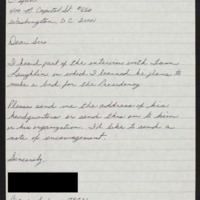 C-Span
400 N. Capitol St. #650
Washington, D.C. 20001
Dear Sirs
I heard part of the interview with Tom
Laughlin in which I learned he plans to
make a bid for the Presidency.
Please send me the address of his
headquarters or send this on to him
or his organization. I'd like to send a
note of encouragement.
Sincerely,